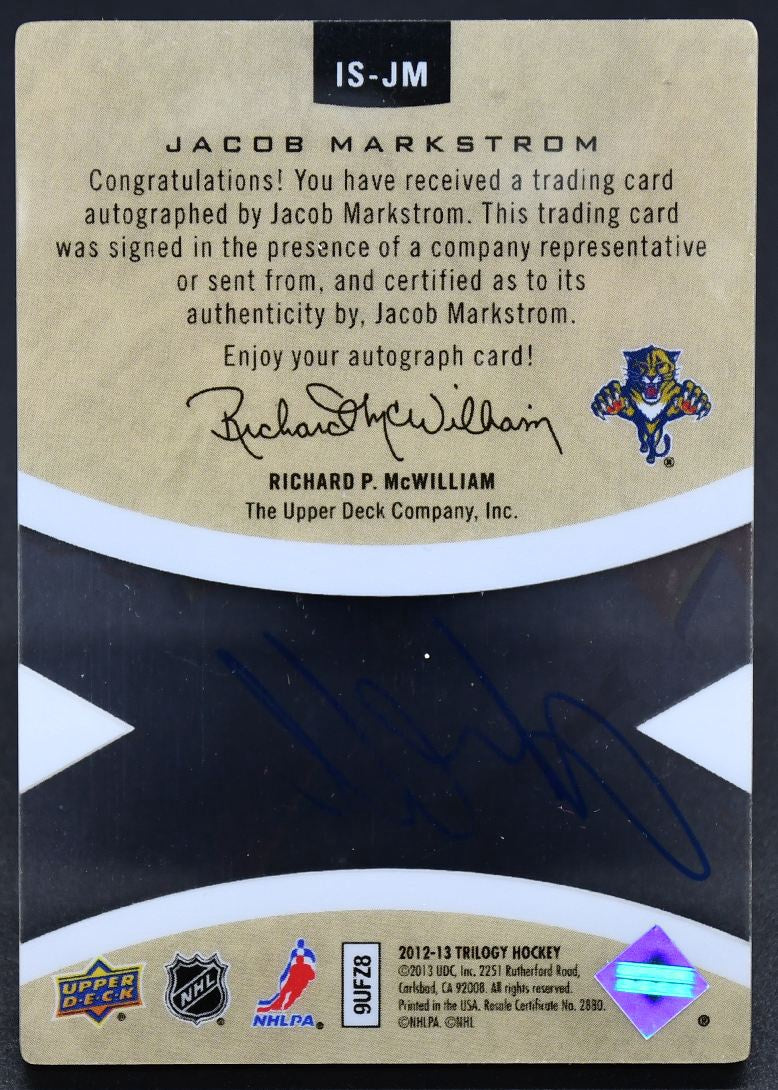 IS-JM
JACOB MARKSTROM
Congratulations! You have received a trading card
autographed by Jacob Markstrom. This trading card
was signed in the presence of a company representative
or sent from, and certified as to its
authenticity by, Jacob Markstrom.
Enjoy your autograph card!
Richard McWilliam
RICHARD P. McWILLIAM
The Upper Deck Company, Inc.
UPPER
DECK
NHL
NHLPA
9UFZ8
2012-13 TRILOGY HOCKEY
©2013 UDC, Inc. 2251 Rutherford Road,
Carlsbad, CA 92008. All rights reserved.
Printed in the USA. Resale Certificate No. 2880.
©NHLPA. ©NHL